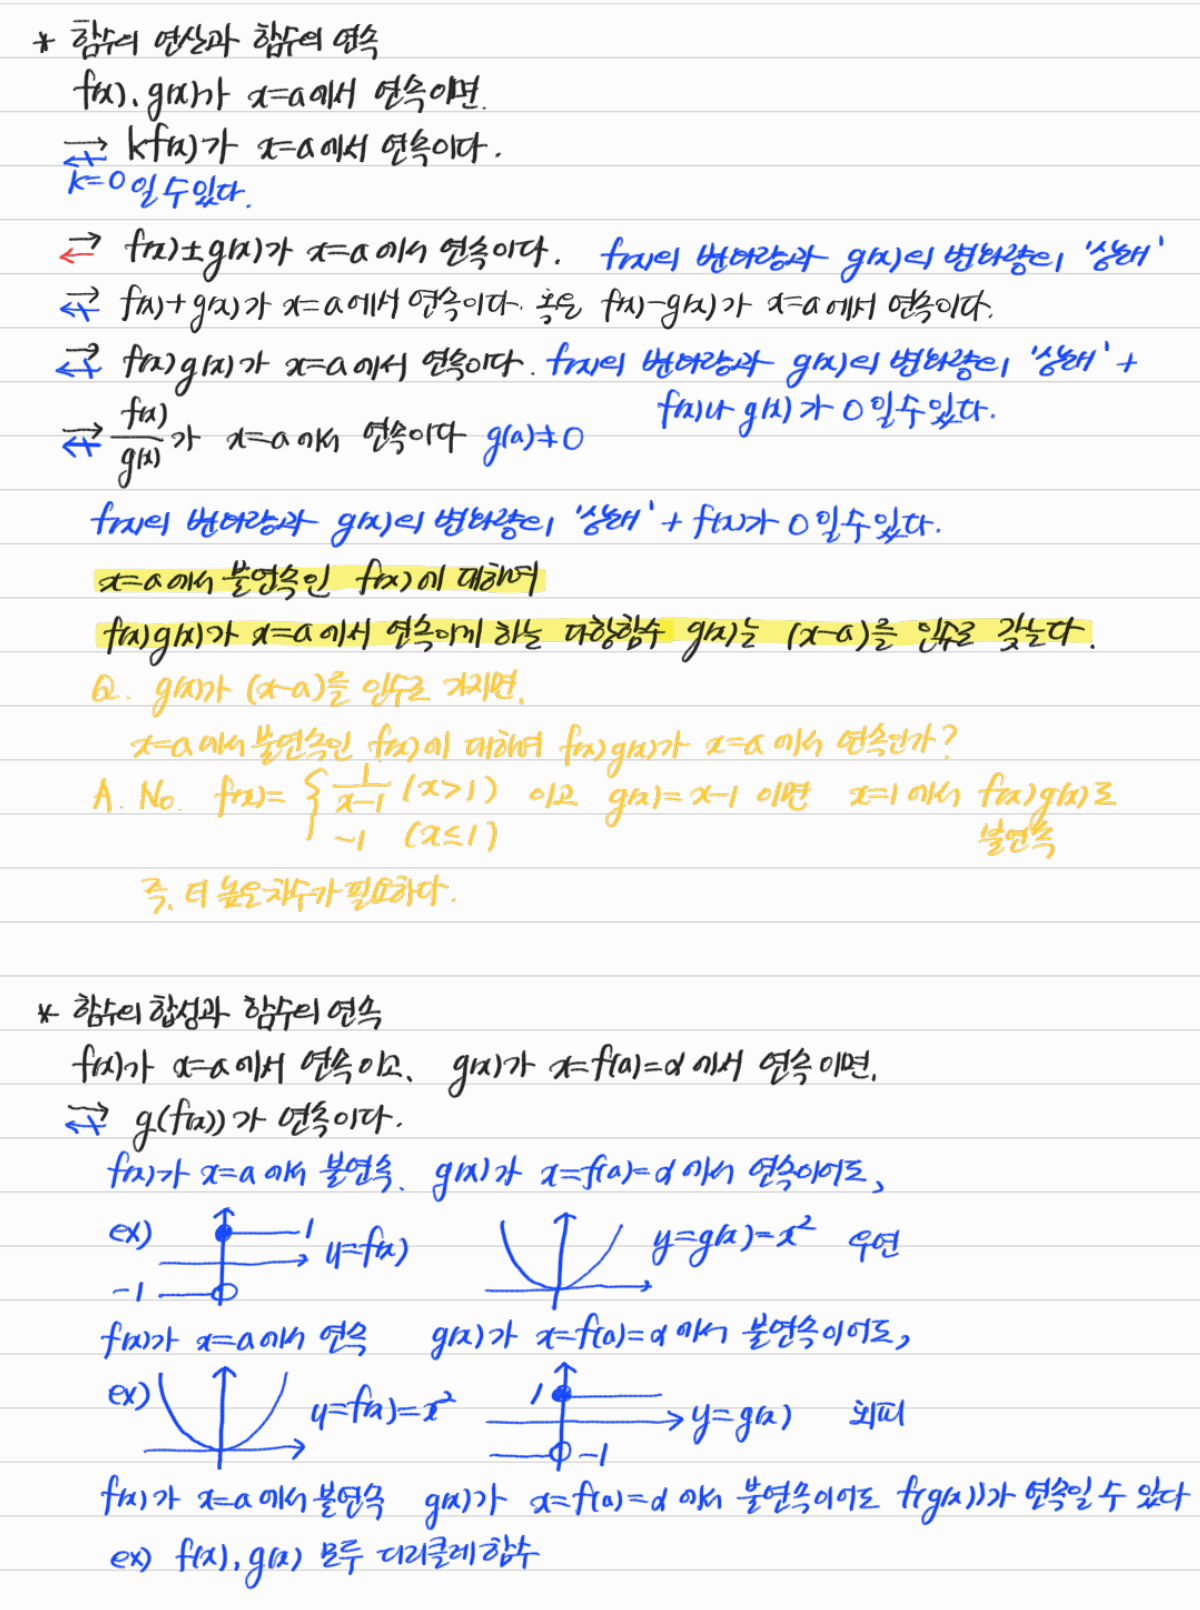 * 함수의 연산과 함수의 연속
f(x), g(x)가 x=a에서 연속이면,
→ kf(x)가 x=a에서 연속이다.
k=0일 수 있다.
→ f(x)±g(x)가 x=a에서 연속이다. f(x)의 변화량과 g(x)의 변화량의 '상쇄'
→ f(x)+g(x)가 x=a에서 연속이다. 혹은 f(x)-g(x)가 x=a에서 연속이다.
→ f(x)g(x)가 x=a에서 연속이다. f(x)의 변화량과 g(x)의 변화량의 '상쇄' +
f(x)나 g(x)가 0일 수 있다.
→ f(x)/g(x)가 x=a에서 연속이다 g(a)≠0
f(x)의 변화량과 g(x)의 변화량의 '상쇄' + f(x)가 0일 수 있다.
x=a에서 불연속인 f(x)에 대하여
f(x)g(x)가 x=a에서 연속이게 하는 다항함수 g(x)는 (x-a)를 인수로 갖는다.
Q. g(x)가 (x-a)를 인수로 가지면,
x=a에서 불연속인 f(x)에 대하여 f(x)g(x)가 x=a에서 연속인가?
A. No. f(x)= { 1/(x-1) (x>1) 이고 g(x)=x-1 이면 x=1에서 f(x)g(x)로
-1 (x≤1) 불연속
즉, 더 높은 차수가 필요하다.
* 함수의 합성과 함수의 연속
f(x)가 x=a에서 연속이고, g(x)가 x=f(a)=α에서 연속이면,
→ g(f(x))가 연속이다.
f(x)가 x=a에서 불연속, g(x)가 x=f(a)=α에서 연속이어도,
ex) 1 y=f(x) y=g(x)=x² 우연
-1
f(x)가 x=a에서 연속 g(x)가 x=f(a)=α에서 불연속이어도,
ex) y=f(x)=x² 1 y=g(x) 회피
-1
f(x)가 x=a에서 불연속 g(x)가 x=f(a)=α에서 불연속이어도 f(g(x))가 연속일 수 있다
ex) f(x), g(x) 모두 디리클레 함수